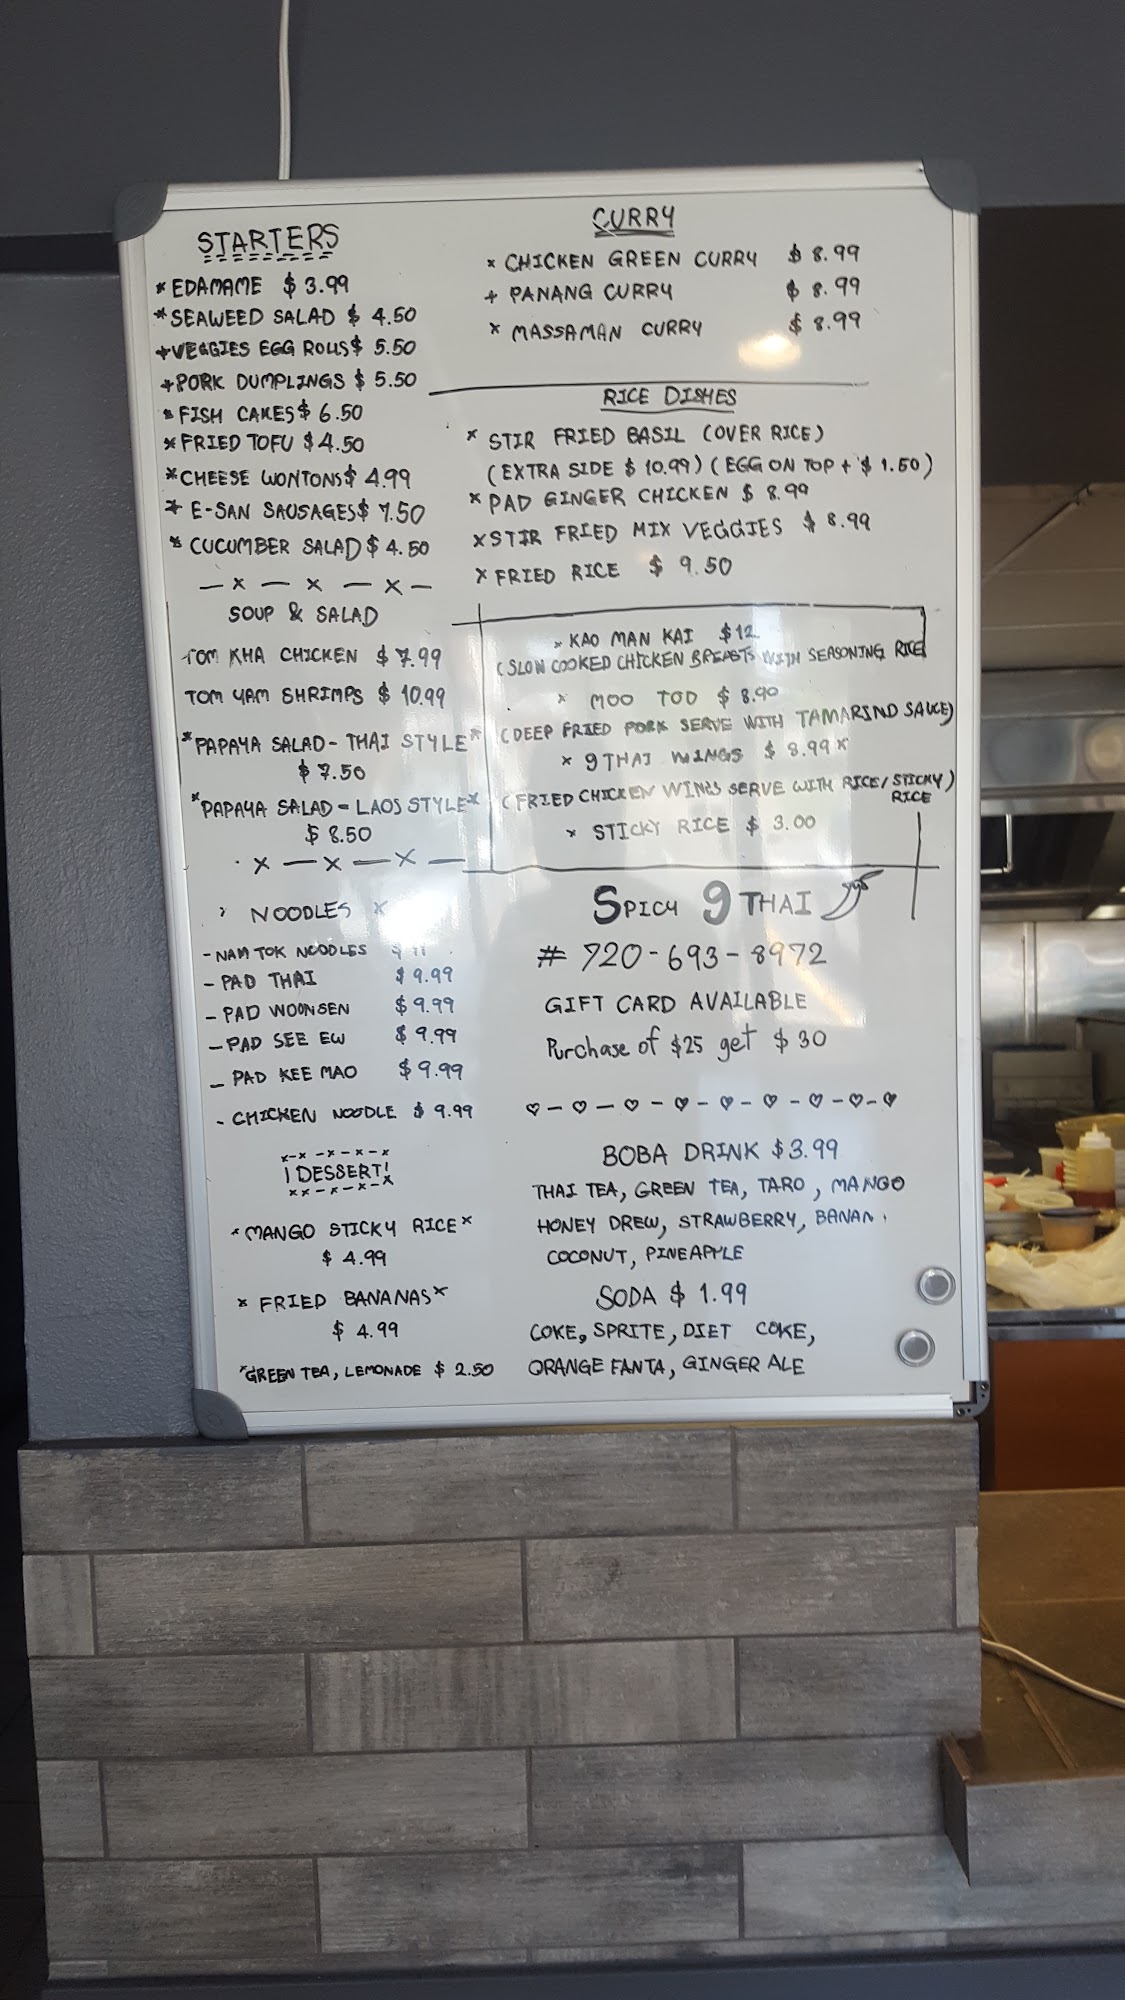 STARTERS
* EDAMAME $ 3.99
* SEAWEED SALAD $ 4.50
+ VEGGIES EGG ROLLS $ 5.50
+ PORK DUMPLINGS $ 5.50
* FISH CAKES $ 6.50
* FRIED TOFU $ 4.50
* CHEESE WONTONS $ 4.99
+ E-SAN SAUSAGES $ 7.50
* CUCUMBER SALAD $ 4.50
— x — x — x —
SOUP & SALAD
TOM KHA CHICKEN $ 7.99
TOM YAM SHRIMPS $ 10.99
*PAPAYA SALAD - THAI STYLE*
$ 7.50
*PAPAYA SALAD - LAOS STYLE*
$ 8.50
x — x — x —
NOODLES x
- NAM TOK NOODLES
- PAD THAI $ 9.99
- PAD WOONSEN $ 9.99
- PAD SEE EW $ 9.99
- PAD KEE MAO $ 9.99
- CHICKEN NOODLE $ 9.99
x-x -x-x-x
¡ DESSERT!
xx-x-x-x
* MANGO STICKY RICE*
$ 4.99
* FRIED BANANAS*
$ 4.99
*GREEN TEA, LEMONADE $ 2.50
CURRY
x CHICKEN GREEN CURRY $ 8.99
+ PANANG CURRY $ 8.99
x MASSAMAN CURRY $ 8.99
RICE DISHES
x STIR FRIED BASIL (OVER RICE)
(EXTRA SIDE $ 10.99) (EGG ON TOP + $ 1.50)
x PAD GINGER CHICKEN $ 8.99
x STIR FRIED MIX VEGGIES $ 8.99
x FRIED RICE $ 9.50
x KAO MAN KAI $12
(SLOW COOKED CHICKEN BREASTS WITH SEASONING RICE
x MOO TOD $ 8.90
(DEEP FRIED PORK SERVE WITH TAMARIND SAUCE)
x 9 THAI WINGS $ 8.99 x
(FRIED CHICKEN WINGS SERVE WITH RICE/STICKY)
RICE
x STICKY RICE $ 3.00
SPICY 9 THAI
# 720-693-8972
GIFT CARD AVAILABLE
Purchase of $25 get $ 30
BOBA DRINK $ 3.99
THAI TEA, GREEN TEA, TARO, MANGO
HONEY DREW, STRAWBERRY, BANAN
COCONUT, PINEAPPLE
SODA $ 1.99
COKE, SPRITE, DIET COKE,
ORANGE FANTA, GINGER ALE